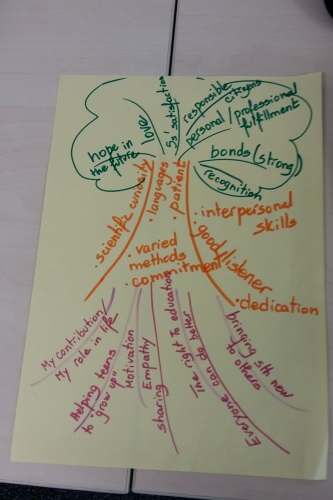 hope in
the future
love
Ss' satisfaction
responsible
citizens
personal / professional
fulfillment
bonds (strong)
recognition
· scientific curiosity
· languages
· patient
· interpersonal
skills
· good listener
· varied
methods
· commitment
· dedication
My contribution /
My role in life
Helping teens
to "grow up"
Motivation
Empathy
sharing
The right to education
Everyone can do better
bringing sth new
to others